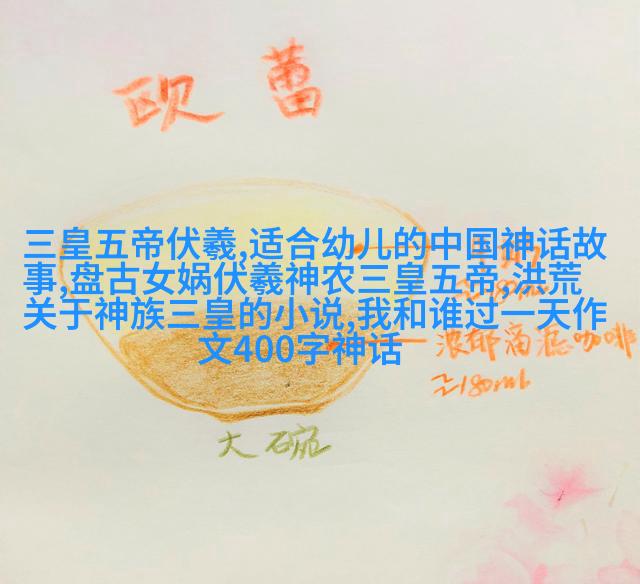 欧蕾
三皇五帝伏羲,适合幼儿的中国神话故
事,盘古女娲伏羲神农三皇五帝,洪荒
关于神族三皇的小说,我和谁过一天作
文400字神话
浓郁滴滤咖啡
≈180ml
大碗